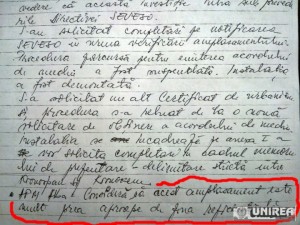 vedere că această investiție intră sub prevede
rile Directivei SEVESO.
S-au solicitat completări pe notificarea
SEVESO în urma verificării amplasamentului.
Procedura parcursă pentru emiterea acordului
de mediu a fost suspendată. Instalația
a fost demontată.
S-a solicitat un alt Certificat de urbanism
și procedura s-a reluat de la o nouă
solicitare de obținere a acordului de mediu
Instalația se încadrează pe anexa I
se vor solicita completări în cadrul
lui de prezentare a delimitare strictă între
Kronospan și
APM Alba consideră că acest amplasament este
mult prea aproape de zona
UNIREA